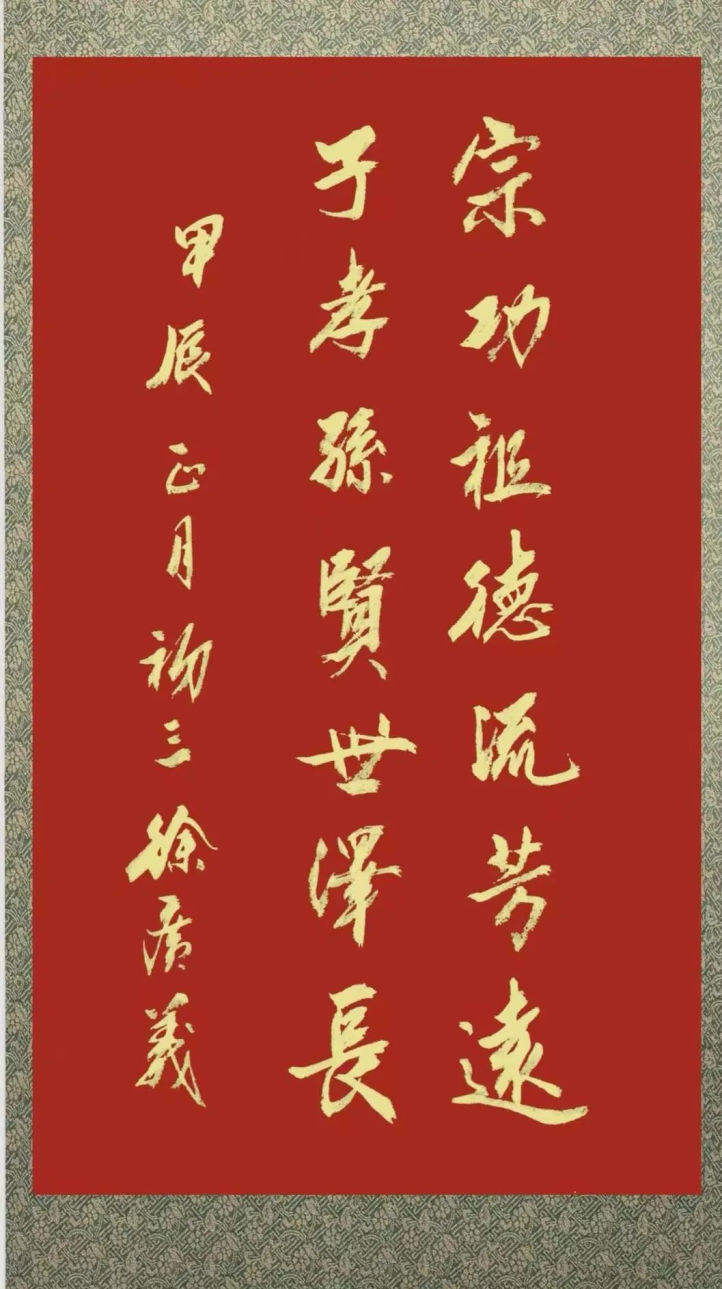 宗功祖德流芳遠
子孝孫賢世澤長
甲辰正月初三徐广義